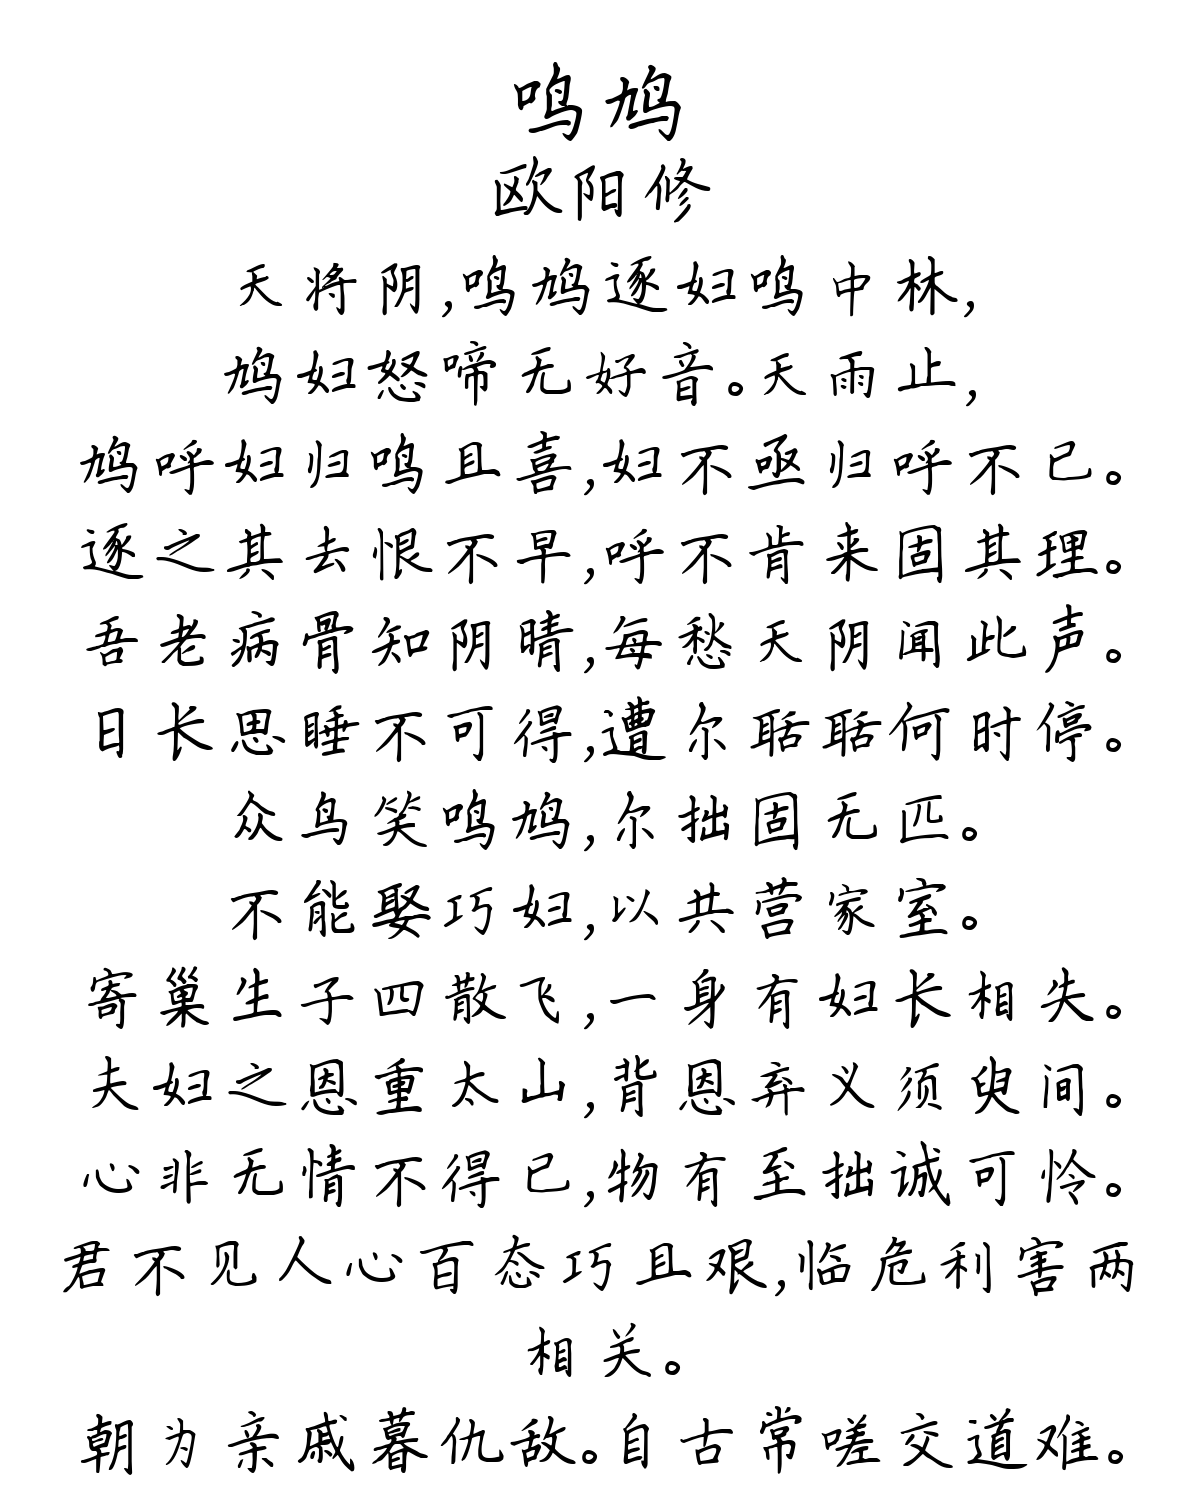 鸣鸠
欧阳修
天将阴,鸣鸠逐妇鸣中林,
鸠妇怒啼无好音。天雨止,
鸠呼妇归鸣且喜,妇不亟归呼不已。
逐之其去恨不早,呼不肯来固其理。
吾老病骨知阴晴,每愁天阴闻此声。
日长思睡不可得,遭尔聒聒何时停。
众鸟笑鸣鸠,尔拙固无匹。
不能娶巧妇,以共营家室。
寄巢生子四散飞,一身有妇长相失。
夫妇之恩重太山,背恩弃义须臾间。
心非无情不得已,物有至拙诚可怜。
君不见人心百态巧且艰,临危利害两
相关。
朝为亲戚暮仇敌。自古常嗟交道难。